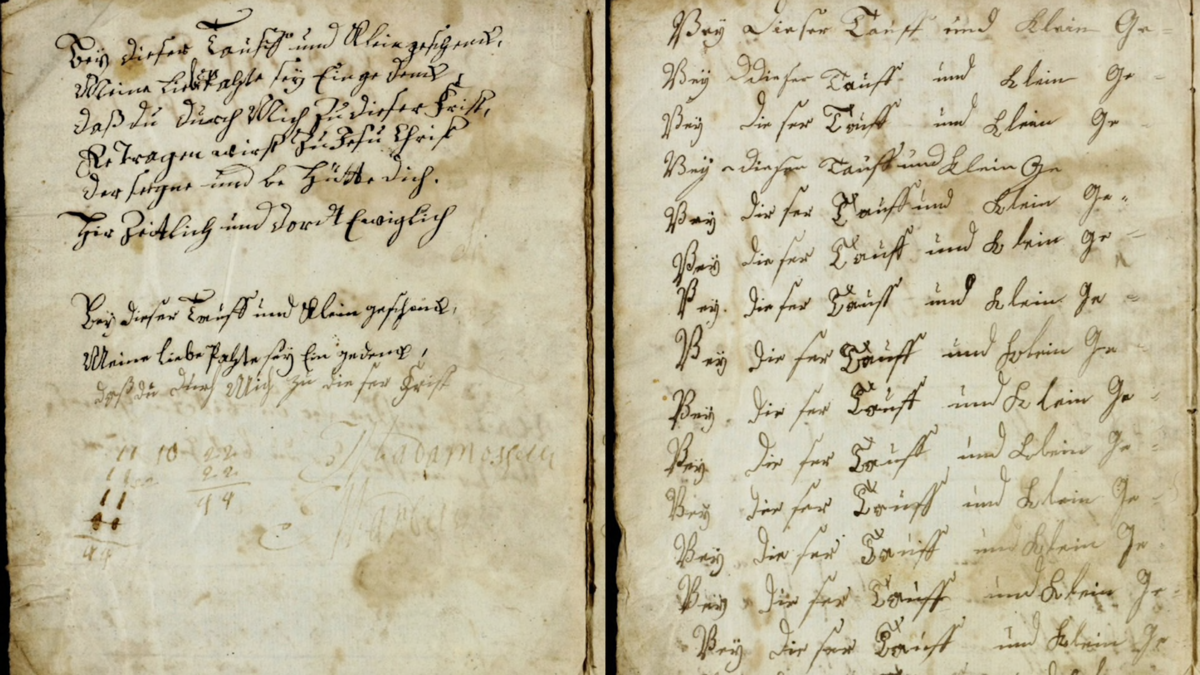 Bey dieser Tauff und Klein geschenk,
Meine Liebe Pahte sey Ein ge denck
daß du durch Mich zu dieser Frist,
Getragen wirst zu Jesu Christ
der segne und be Hütte dich.
Hir Zeitlich und dordt Ewiglich
Bey dieser Tauff und Klein geschenck,
Meine liebe Pahte sey Ein gedenck,
daß du durch Mich zu die ser Frist
11 10 22
11 22
11 44
44
Bey Dieser Tauff und Klein Ge-
Bey ddieser Tauff und Klein Ge-
Bey die ser Tauff und Klein Ge-
Bey dieser Tauff und Klein Ge
Bey die ser Tauff und Klein Ge-
Bey die ser Tauff und Klein Ge-
Bey die ser Tauff und Klein Ge-
Bey die ser Tauff und Klein Ge-
Bey die ser Tauff und Klein Ge-
Bey die ser Tauff und Klein Ge-
Bey die ser Tauff und Klein Ge-
Bey die ser Tauff und Klein Ge
Bey die ser Tauff und Klein Ge-
Bey die ser Tauff und Klein Ge